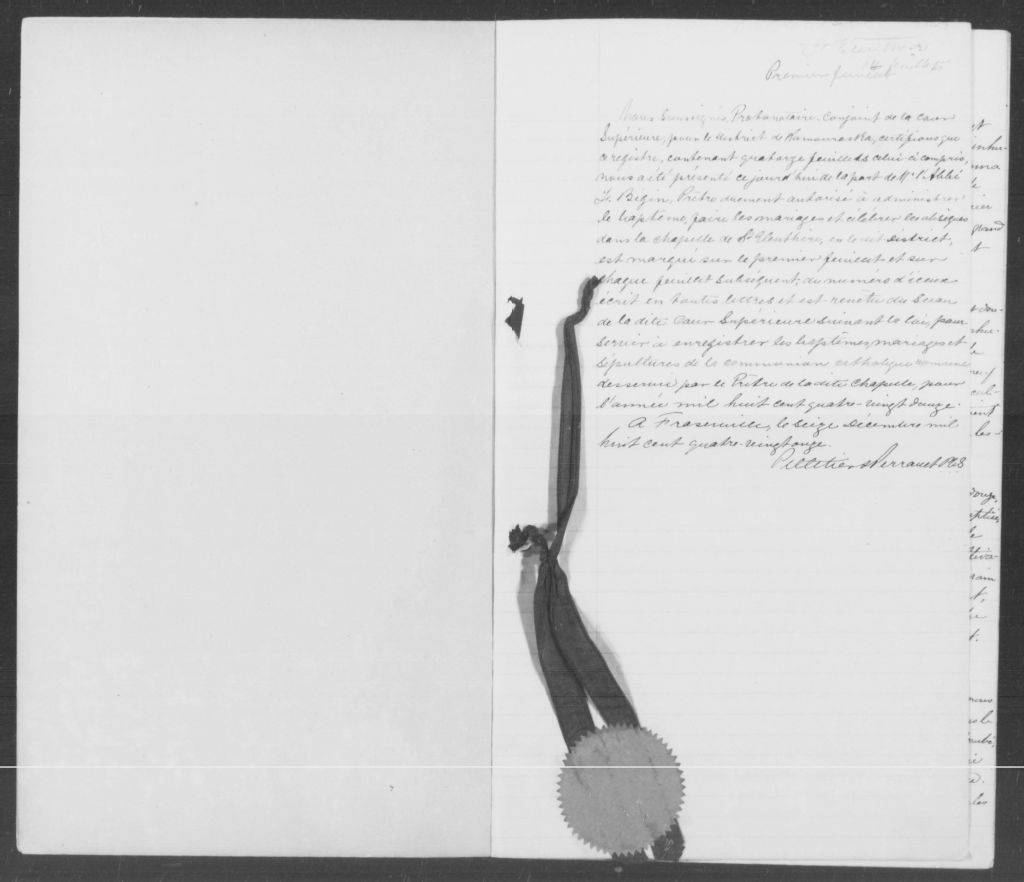 St Eleuthère
14 feuillets
Premier feuillet
Nous Soussignés, Protonotaire-Conjoint de la Cour
Supérieure, pour le district de Kamouraska, certifions que
ce registre, contenant quatorze feuillets celui-ci compris,
nous a été présenté ce jourd'hui de la part de Mr l'Abbé
Bégin, Prêtre duement autorisé à administrer
le baptême, faire les mariages et célébrer les obsèques
dans la chapelle de St Eleuthère, en le dit district,
est marqué sur le premier feuillet et sur
chaque feuillet subséquent, du numéro d'iceux
écrit en toutes lettres et est revêtu du Sceau
de la dite Cour Supérieure suivant la loi, pour
servir à enregistrer les baptêmes, mariages et
sépultures de la communion catholique romaine
desservie par le Prêtre de la dite chapelle, pour
l'année mil huit cent quatre-vingt douze.
A Fraserville, le seize Décembre mil
huit cent quatre-vingt onze.
Pelletier & Perrault PCS
et
inhu-
le
rier
grand
t
t dou-
nhu-
le
ient
les-
douze,
le
t,
t.
les